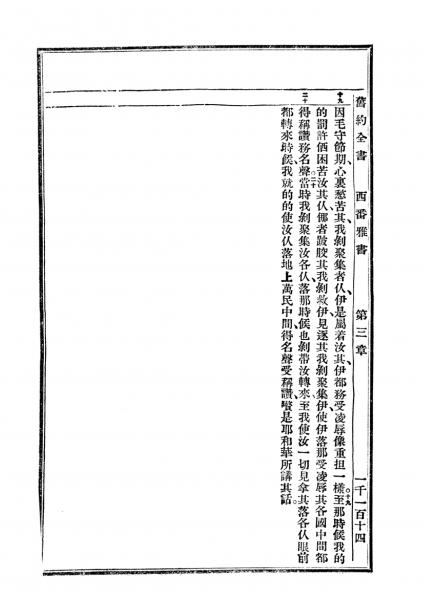 舊約全書　西番雅書　第三章　一千一百十四
十九
因毛守節期、心裏愁苦其、我剝聚集者仈、伊是屬着汝其、伊都務受凌辱像重担一樣、○十九至那時候我的
的罰許困苦汝其仈、者跛脚其我剝救、伊見逐其我剝聚集伊、使伊落那受凌辱其各國中間、都
二十
得稱讚務名聲、○二十當時我剝聚集汝各仈、落那時候也剝帶汝轉來、至我使汝一切見拿其、落各仈眼前
都轉來時候、我就的的使汝仈落地上萬民中間、得名聲受稱讚、是耶和華所講其話。